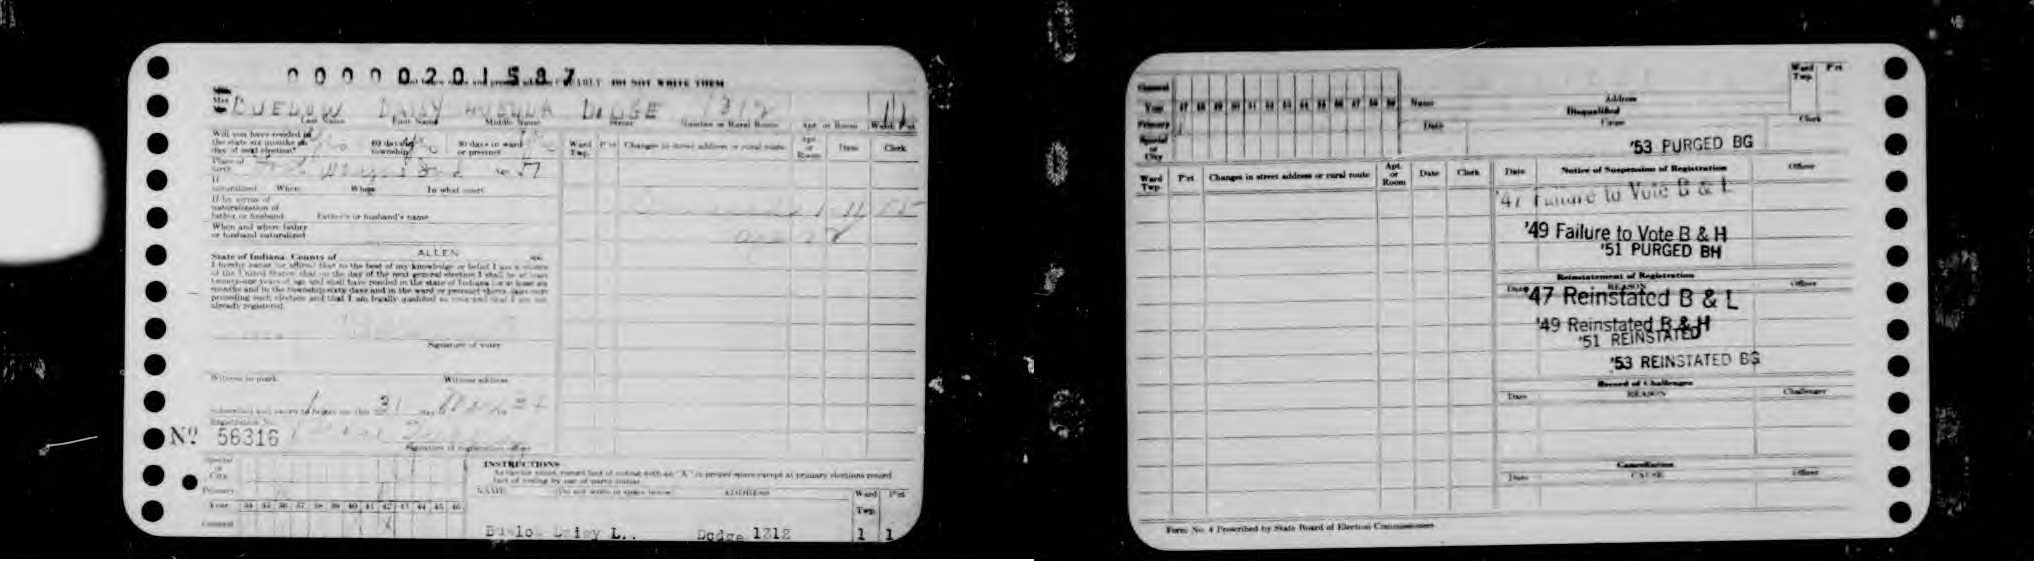 0000201587
DO NOT WRITE THEM
DUELOW DAISY LUELLA DODGE 1312 1 1
Last Name First Name Middle Name Street Number or Rural Route Apt. or Room Ward Pct
Will you have resided in
the state six months on 60 days in 30 days in ward
day of next election? township or precinct
Ward Twp. P'ct Changes in street address or rural route Apt. or Room Date Clerk
Place of birth
If naturalized When Where In what court
If by virtue of
naturalization of
father or husband Father's or husband's name
When and where father
or husband naturalized
State of Indiana, County of ALLEN ss:
I hereby swear (or affirm) that to the best of my knowledge or belief I am a citizen
of the United States; that on the day of the next general election I shall be at least
twenty-one years of age and shall have resided in the state of Indiana for at least six
months and in the township sixty days and in the ward or precinct thirty days next
preceding such election and that I am legally qualified to vote and that I am not
already registered.
Signature of voter
Witness to mark Witness address
Subscribed and sworn to before me this 31 day
Registration No.
No 56316
Signature of registration officer
Special or City
Primary
Year 34 35 36 37 38 39 40 41 42 43 44 45 46
General
INSTRUCTIONS
NAME (Do not write in space below) ADDRESS Ward Twp. P'ct
Daisy L., Dodge 1312 1 1
General
Year 47 48 49 50 51 52 53 54 55 56 57 58 59
Primary
Special or City
Name Address Ward Twp. P'ct
Disqualified
Date Cause Clerk
'53 PURGED BG
Ward Twp. P'ct Changes in street address or rural route Apt. or Room Date Clerk
Date Notice of Suspension of Registration Officer
'47 Failure to Vote B & L
'49 Failure to Vote B & H
'51 PURGED BH
Reinstatement of Registration
Date REASON Officer
'47 Reinstated B & L
'49 Reinstated B & H
'51 REINSTATED
'53 REINSTATED BG
Record of Challenges
Date REASON Challenger
Cancellation
Date CAUSE Officer
Form No. 4 Prescribed by State Board of Election Commissioners